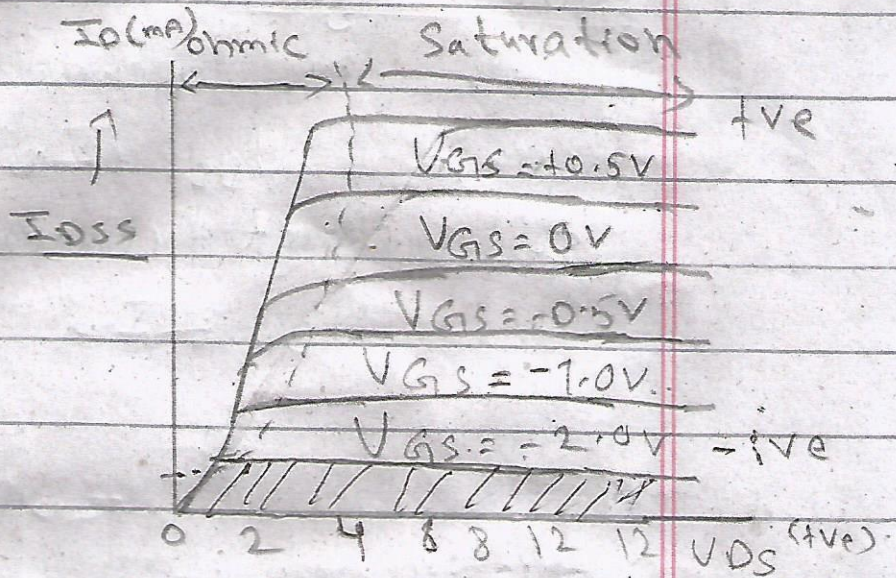 ID(mA) ohmic Saturation
+ve
VGS = +0.5V
IDSS
VGS = 0V
VGS = -0.5V
VGS = -1.0V
VGS = -2.0V -ive
0 2 4 6 8 12 12 VDS (+ve)